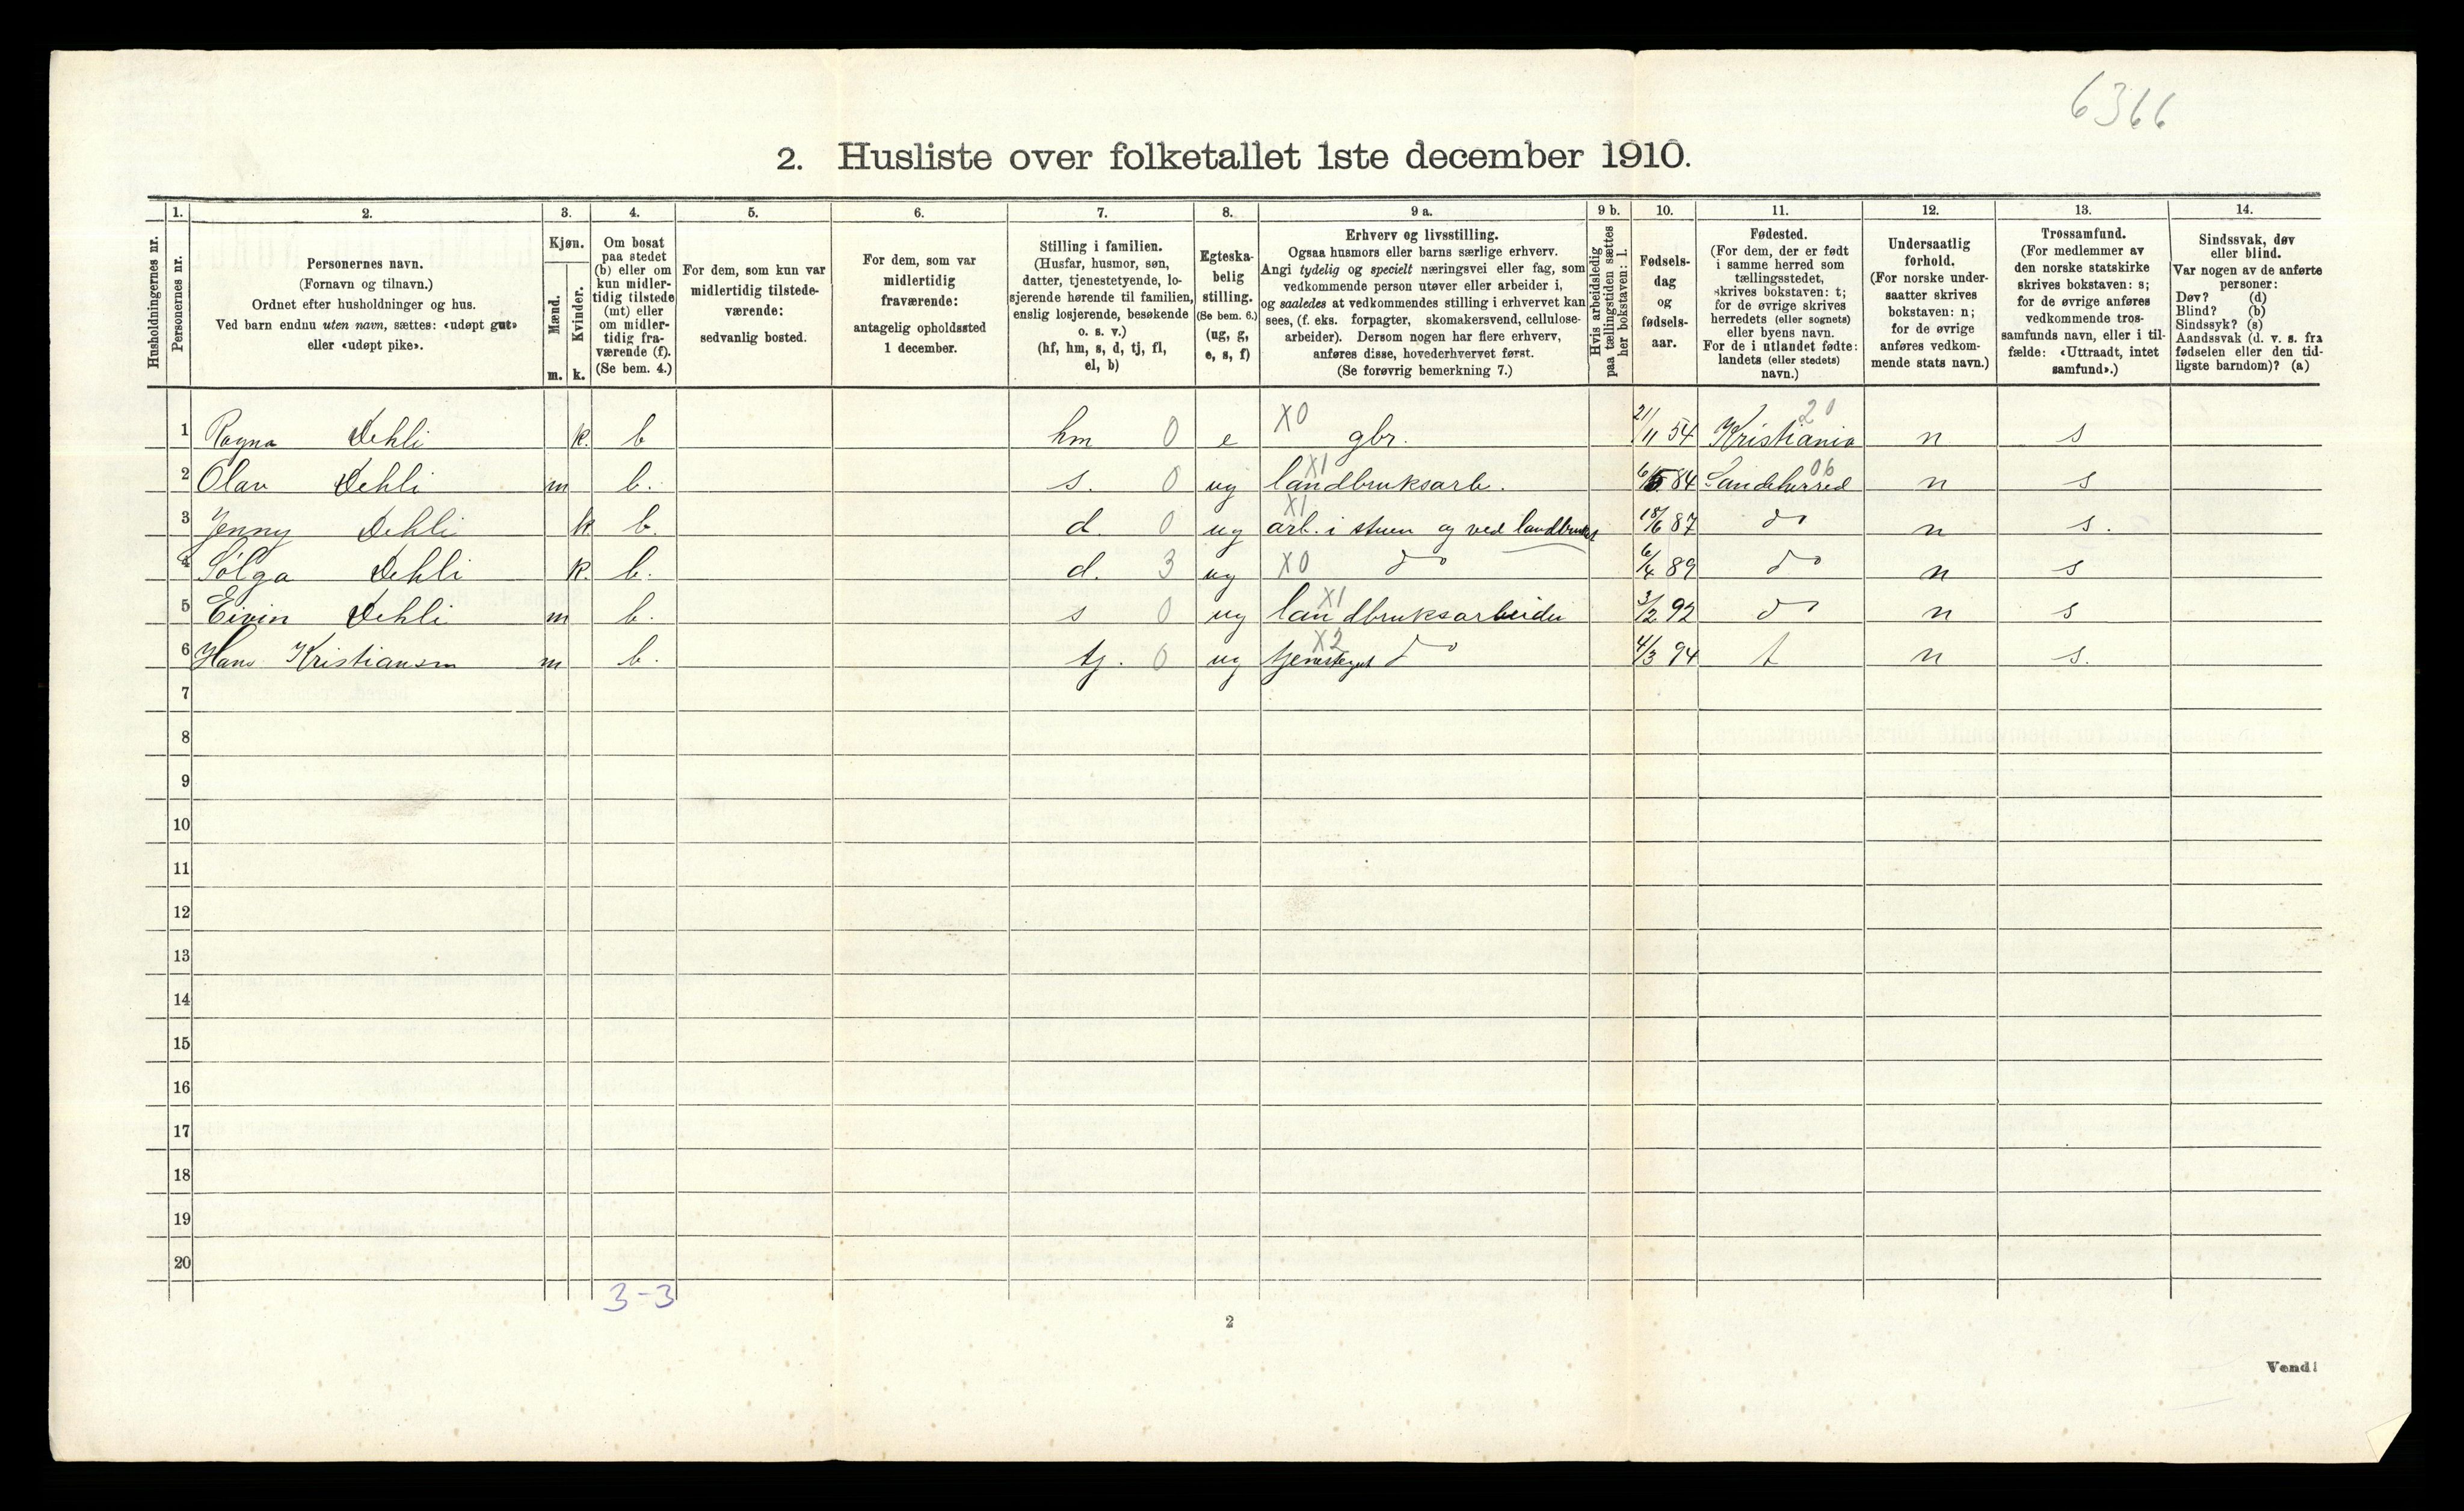 6366
2. Husliste over folketallet 1ste december 1910.
Husholdningernes nr.
1. Personernes nr.
2. Personernes navn.
(Fornavn og tilnavn.)
Ordnet efter husholdninger og hus.
Ved barn endnu uten navn, sættes: «udøpt gut»
eller «udøpt pike».
3. Kjøn.
Mænd. m.
Kvinder. k.
4. Om bosat
paa stedet
(b) eller om
kun midler-
tidig tilstede
(mt) eller
om midler-
tidig fra-
værende (f).
(Se bem. 4.)
5. For dem, som kun var
midlertidig tilstede-
værende:
sedvanlig bosted.
6. For dem, som var
midlertidig
fraværende:
antagelig opholdssted
1 december.
7. Stilling i familien.
(Husfar, husmor, søn,
datter, tjenestetyende, lo-
sjerende hørende til familien,
enslig losjerende, besøkende
o. s. v.)
(hf, hm, s, d, tj, fl,
el, b)
8. Egteska-
belig
stilling.
(Se bem. 6.)
(ug, g,
e, s, f)
9 a. Erhverv og livsstilling.
Ogsaa husmors eller barns særlige erhverv.
Angi tydelig og specielt næringsvei eller fag, som
vedkommende person utøver eller arbeider i,
og saaledes at vedkommendes stilling i erhvervet kan
sees, (f. eks. forpagter, skomakersvend, cellulose-
arbeider). Dersom nogen har flere erhverv,
anføres disse, hovederhvervet først.
(Se forøvrig bemerkning 7.)
9 b. Hvis arbeidsledig
paa tællingstiden sættes
her bokstaven: l.
10. Fødsels-
dag
og
fødsels-
aar.
11. Fødested.
(For dem, der er født
i samme herred som
tællingsstedet,
skrives bokstaven: t;
for de øvrige skrives
herredets (eller sognets)
eller byens navn.
For de i utlandet fødte:
landets (eller stedets)
navn.)
12. Undersaatlig
forhold.
(For norske under-
saatter skrives
bokstaven: n;
for de øvrige
anføres vedkom-
mende stats navn.)
13. Trossamfund.
(For medlemmer av
den norske statskirke
skrives bokstaven: s;
for de øvrige anføres
vedkommende tros-
samfunds navn, eller i til-
fælde: «Uttraadt, intet
samfund».)
14. Sindssvak, døv
eller blind.
Var nogen av de anførte
personer:
Døv? (d)
Blind? (b)
Sindssyk? (s)
Aandssvak (d. v. s. fra
fødselen eller den tid-
ligste barndom)? (a)
1 Ragna Dehli k. b hm 0 e X0 gbr. 21/11 54 Kristiania 20 n s
2 Olav Dehli m b. s. 0 ug X1 landbruksarb. 6/5 84 Sandeherred 06 n s
3 Jenny Dehli k b. d. 0 ug X1 arb. i stuen og ved landbruket 18/6 87 do n s.
4 Sølga Dehli k. b. d. 3 ug X0 do 6/4 89 do n s
5 Eivin Dehli m b. s 0 ug X1 landbruksarbeider 3/2 92 do n s
6 Hans Kristiansen m b. tj. 0 ug X2 tjenestegut do 4/3 94 t n s.
7
8
9
10
11
12
13
14
15
16
17
18
19
20
3-3
2
Vend!